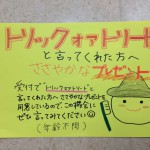 トリックオァトリート
と言ってくれた方へ
ささやかなプレゼント
受付でトリックオァトリートと
言ってくれた方へささやかなプレゼントを
用意しているので、この機会に
ぜひ言ってみてください
(年齢不問)